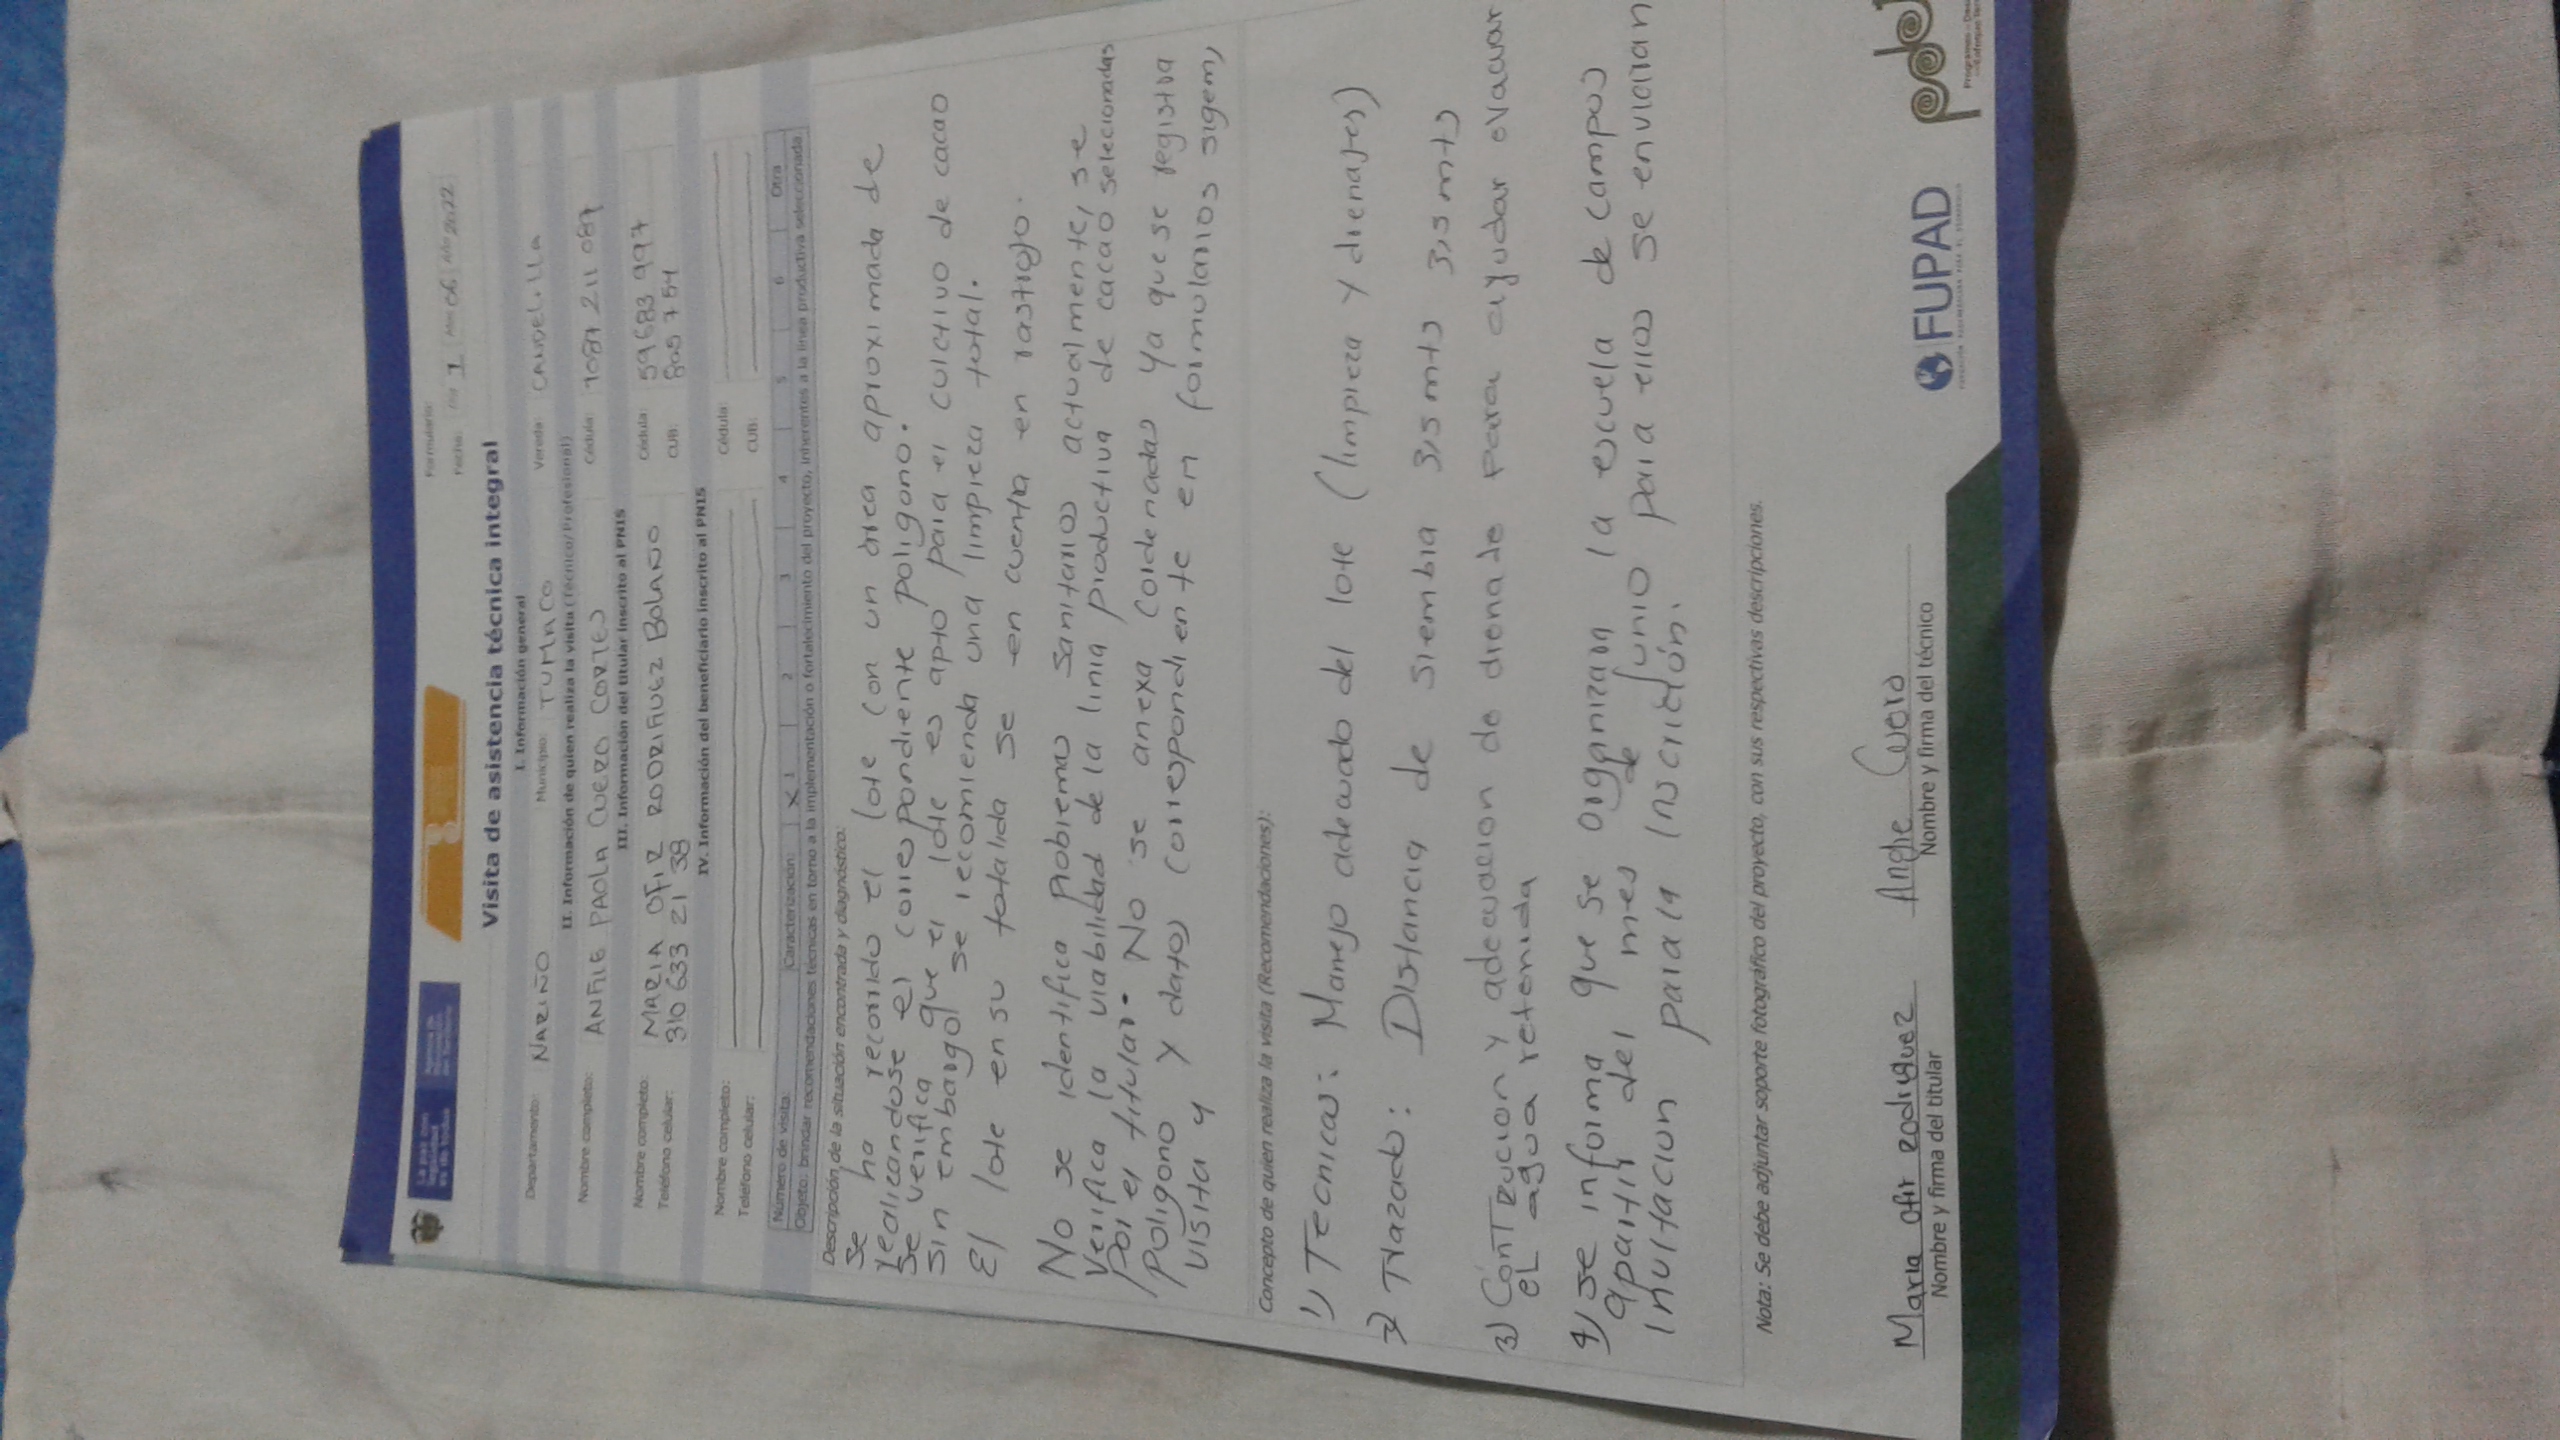 La paz con legalidad es de todos
Formulario:
Fecha: Día 1 Mes 06 Año 2022
Visita de asistencia técnica integral
I. Información general
Departamento: NARIÑO Municipio: TUMACO Vereda: CANDELILLA
II. Información de quien realiza la visita (Técnico/Profesional)
Nombre completo: ANGIE PAOLA CUERO CORTES Cédula: 1087 211 089
III. Información del titular inscrito al PNIS
Nombre completo: MARIA OFIR RODRIGUEZ BOLAÑO Cédula: 59683 997
Teléfono celular: 310 633 21 38 CUB: 805 7 54
IV. Información del beneficiario inscrito al PNIS
Nombre completo: Cédula:
Teléfono celular: CUB:
Número de visita: Caracterización: X 1 2 3 4 5 6 Otra
Objeto: brindar recomendaciones técnicas en torno a la implementación o fortalecimiento del proyecto, inherentes a la línea productiva seleccionada
Descripción de la situación encontrada y diagnóstico:
Se ha recorrido el lote con un área aproximada de
realicandose el correspondiente poligono.
Se verifica que el lote es apto para el cultivo de cacao
sin embargo, se recomienda una limpieza total.
El lote en su totalida se en cuentra en rastrojo.
No se identifica problemas sanitarios actualmente, se
Verifica la viabilidad de la linia productiva de cacao seleccionadas
por el titular. No se anexa cordenadas ya que se registra
poligono y datos correspondiente en formularios sigem,
visita 4
Concepto de quien realiza la visita (Recomendaciones):
1) Tecnicas: Manejo adecuado del lote (limpieza y drenajes)
2) Trazado: Distancia de siembra 3,5 mts 3,5 mts 3,5 mts
3) Contrucion y adecuacion de drenade para ayudar evacuar
el agua retenida
4) se informa que se organizara la escuela de campos
apartir del mes de junio para ellos se enviaran
invitacion para la inscrición.
Nota: Se debe adjuntar soporte fotográfico del proyecto, con sus respectivas descripciones.
Maria ofir rodriguez Angie Cuero
Nombre y firma del titular Nombre y firma del técnico
FUPAD